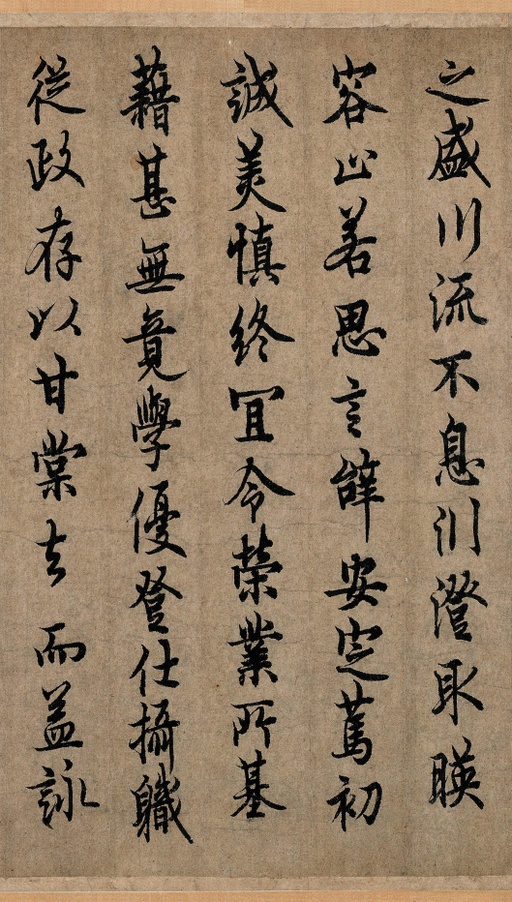 之盛川流不息渊澄取暎
容止若思言辝安定篤初
誠美慎終冝令榮業所基
藉甚無竟學優登仕攝軄
從政存以甘棠去而益詠